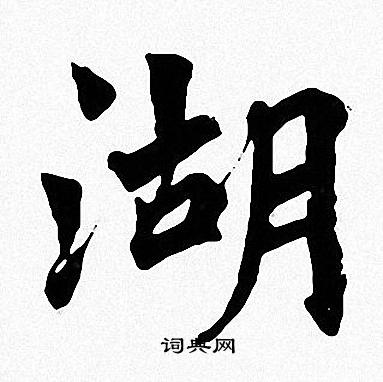 湖
词典网